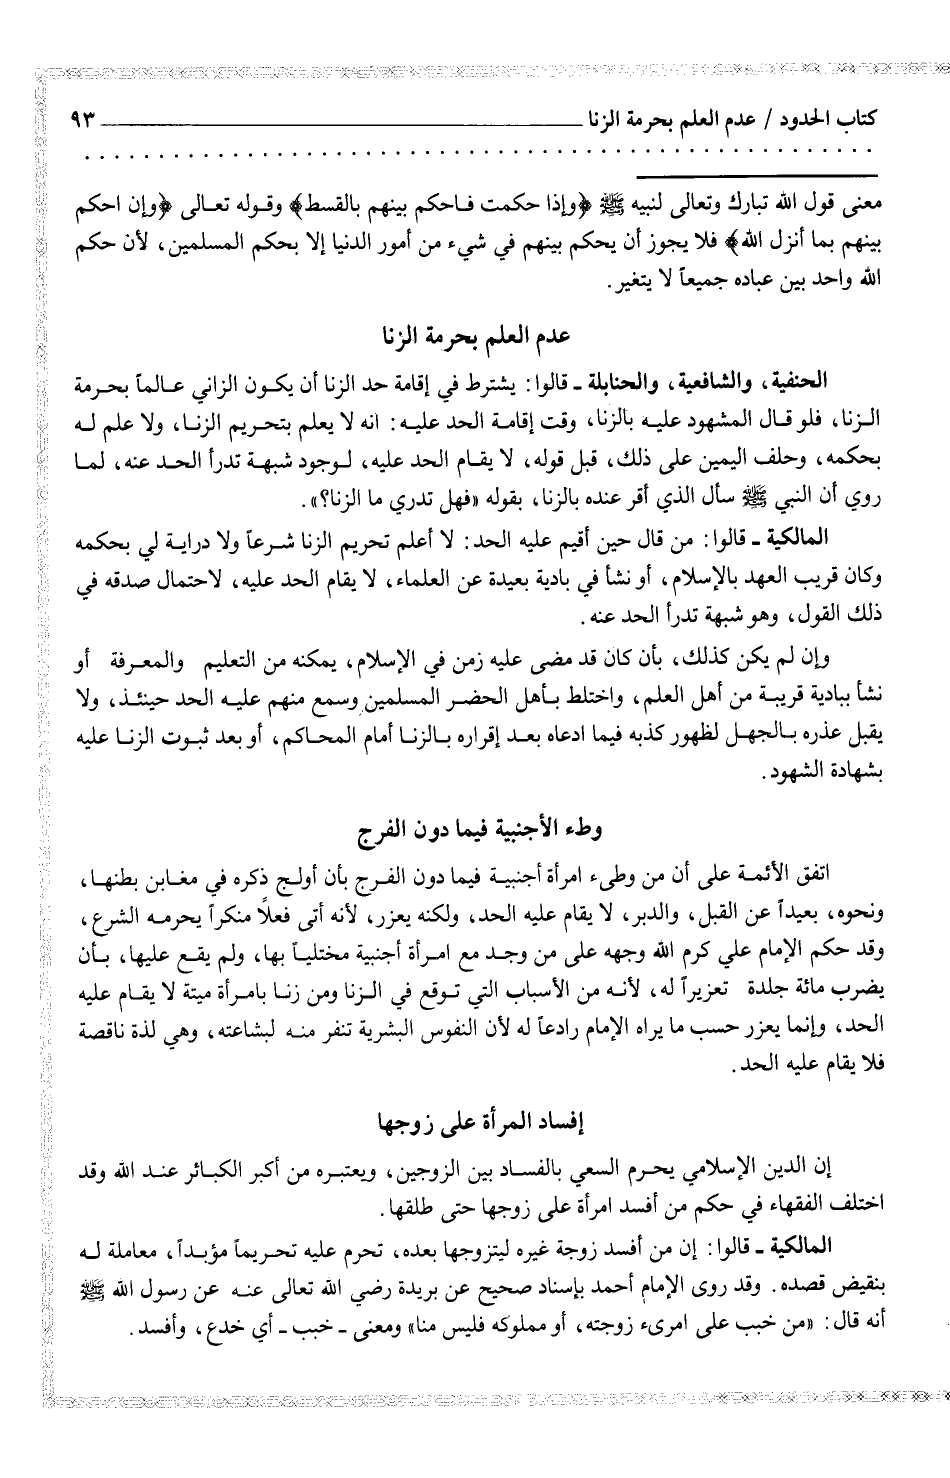 كتاب الحدود / عدم العلم بحرمة الزنا ـــــــــــــــــــــــــــــــــــــ ٩٣
. . . . . . . . . . . . . . . . . . . . . . . . . . . . . . . . . . . . . . . . . . . . . . . . . . . . .
معنى قول الله تبارك وتعالى لنبيه ﷺ ﴿وإذا حكمت فاحكم بينهم بالقسط﴾ وقوله تعالى ﴿وإن احكم
بينهم بما أنزل الله﴾ فلا يجوز أن يحكم بينهم في شيء من أمور الدنيا إلا بحكم المسلمين، لأن حكم
الله واحد بين عباده جميعاً لا يتغير.
عدم العلم بحرمة الزنا
الحنفية، والشافعية، والحنابلة ـ قالوا: يشترط في إقامة حد الزنا أن يكون الزاني عالماً بحرمة
الزنا، فلو قال المشهود عليه بالزنا، وقت إقامة الحد عليه: انه لا يعلم بتحريم الزنا، ولا علم له
بحكمه، وحلف اليمين على ذلك، قبل قوله، لا يقام الحد عليه، لوجود شبهة تدرأ الحد عنه، لما
روي أن النبي ﷺ سأل الذي أقر عنده بالزنا، بقوله «فهل تدري ما الزنا؟».
المالكية ـ قالوا: من قال حين أقيم عليه الحد: لا أعلم تحريم الزنا شرعاً ولا دراية لي بحكمه
وكان قريب العهد بالإسلام، أو نشأ في بادية بعيدة عن العلماء، لا يقام الحد عليه، لاحتمال صدقه في
ذلك القول، وهو شبهة تدرأ الحد عنه.
وإن لم يكن كذلك، بأن كان قد مضى عليه زمن في الإسلام، يمكنه من التعليم والمعرفة أو
نشأ ببادية قريبة من أهل العلم، واختلط بأهل الحضر المسلمين وسمع منهم عليه الحد حينئذ، ولا
يقبل عذره بالجهل لظهور كذبه فيما ادعاه بعد إقراره بالزنا أمام المحاكم، أو بعد ثبوت الزنا عليه
بشهادة الشهود.
وطء الأجنبية فيما دون الفرج
اتفق الأئمة على أن من وطىء امرأة أجنبية فيما دون الفرج بأن أولج ذكره في مغابن بطنها،
ونحوه، بعيداً عن القبل، والدبر، لا يقام عليه الحد، ولكنه يعزر، لأنه أتى فعلاً منكراً يحرمه الشرع،
وقد حكم الإمام علي كرم الله وجهه على من وجد مع امرأة أجنبية مختلياً بها، ولم يقع عليها، بأن
يضرب مائة جلدة تعزيراً له، لأنه من الأسباب التي توقع في الزنا ومن زنا بامرأة ميتة لا يقام عليه
الحد، وإنما يعزر حسب ما يراه الإمام رادعاً له لأن النفوس البشرية تنفر منه لبشاعته، وهي لذة ناقصة
فلا يقام عليه الحد.
إفساد المرأة على زوجها
إن الدين الإسلامي يحرم السعي بالفساد بين الزوجين، ويعتبره من أكبر الكبائر عند الله وقد
اختلف الفقهاء في حكم من أفسد امرأة على زوجها حتى طلقها.
المالكية ـ قالوا: إن من أفسد زوجة غيره ليتزوجها بعده، تحرم عليه تحريماً مؤبداً، معاملة له
بنقيض قصده. وقد روى الإمام أحمد بإسناد صحيح عن بريدة رضي الله تعالى عنه عن رسول الله ﷺ
أنه قال: «من خبب على امرىء زوجته، أو مملوكه فليس منا» ومعنى ـ خبب ـ أي خدع، وأفسد.